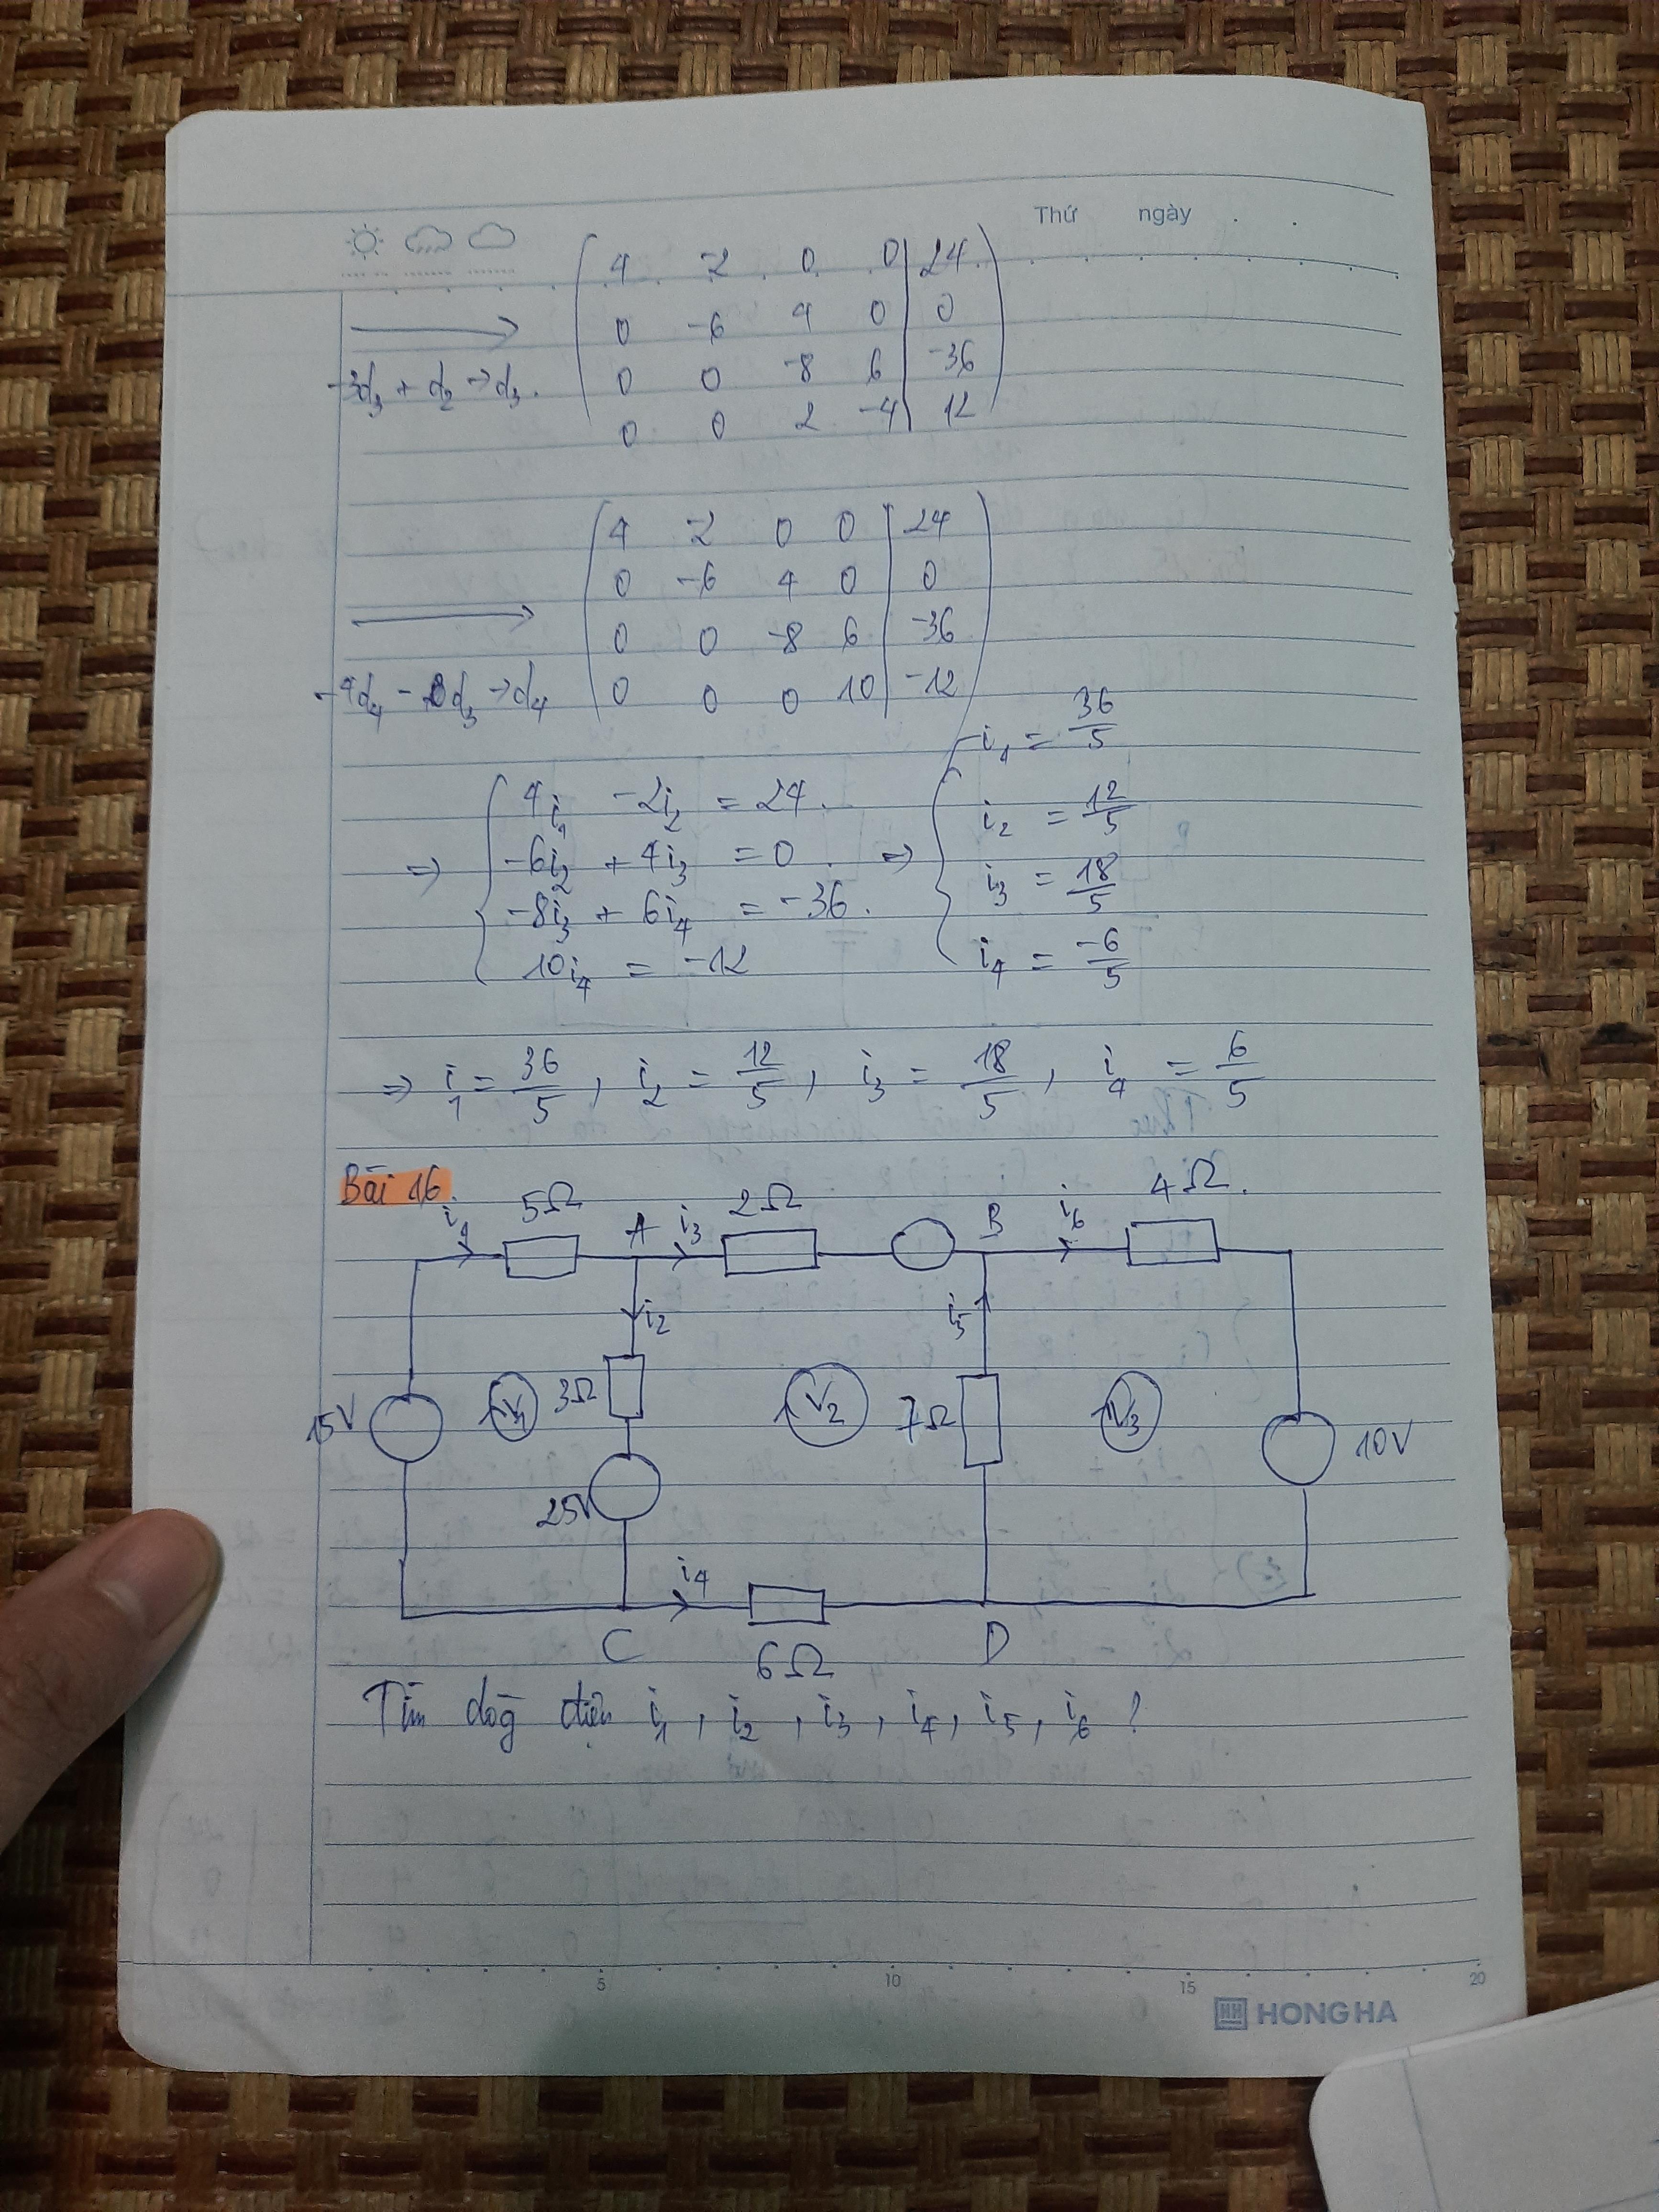 Thứ ngày
4 -2 0 0 | 24
0 -6 4 0 | 0
0 0 -8 6 | -36
0 0 2 -4 | 12
-3d₃ + d₂ → d₃.
4 -2 0 0 | 24
0 -6 4 0 | 0
0 0 -8 6 | -36
0 0 0 10 | -12
-4d₄ - d₃ → d₄
⇒ { 4i₁ - 2i₂ = 24.
-6i₂ + 4i₃ = 0
-8i₃ + 6i₄ = -36.
10i₄ = -12
⇒ { i₁ = 36/5
i₂ = 12/5
i₃ = 18/5
i₄ = -6/5
⇒ i₁ = 36/5, i₂ = 12/5, i₃ = 18/5, i₄ = 6/5
Bài 16.
i₁ 5Ω A i₃ 2Ω B i₆ 4Ω.
i₂ i₅
15V V₁ 3Ω V₂ 7Ω V₃ 10V
25V
i₄
C 6Ω D
Tìm dòg điện i₁, i₂, i₃, i₄, i₅, i₆ ?
5 10 15 20
HH HONG HA